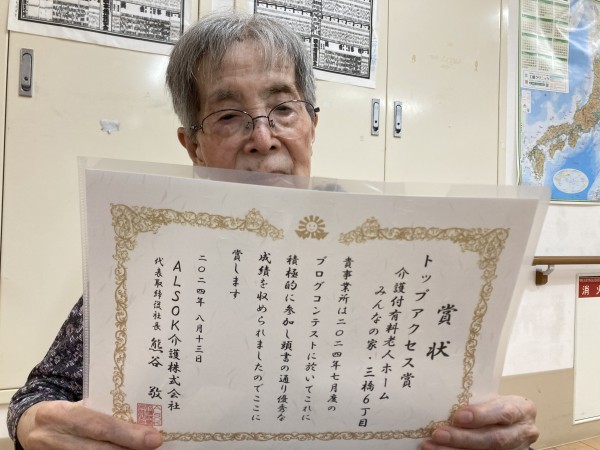 賞状
トップアクセス賞
介護付有料老人ホーム
みんなの家・三橋6丁目
貴事業所は二〇二四年七月度の
ブログコンテストに於いてこれに
積極的に参加し頭書の通り優秀な
成績を収められましたのでここに
賞します
二〇二四年 八月十三日
ALSOK介護株式会社
代表取締役社長 熊谷 敬
消火